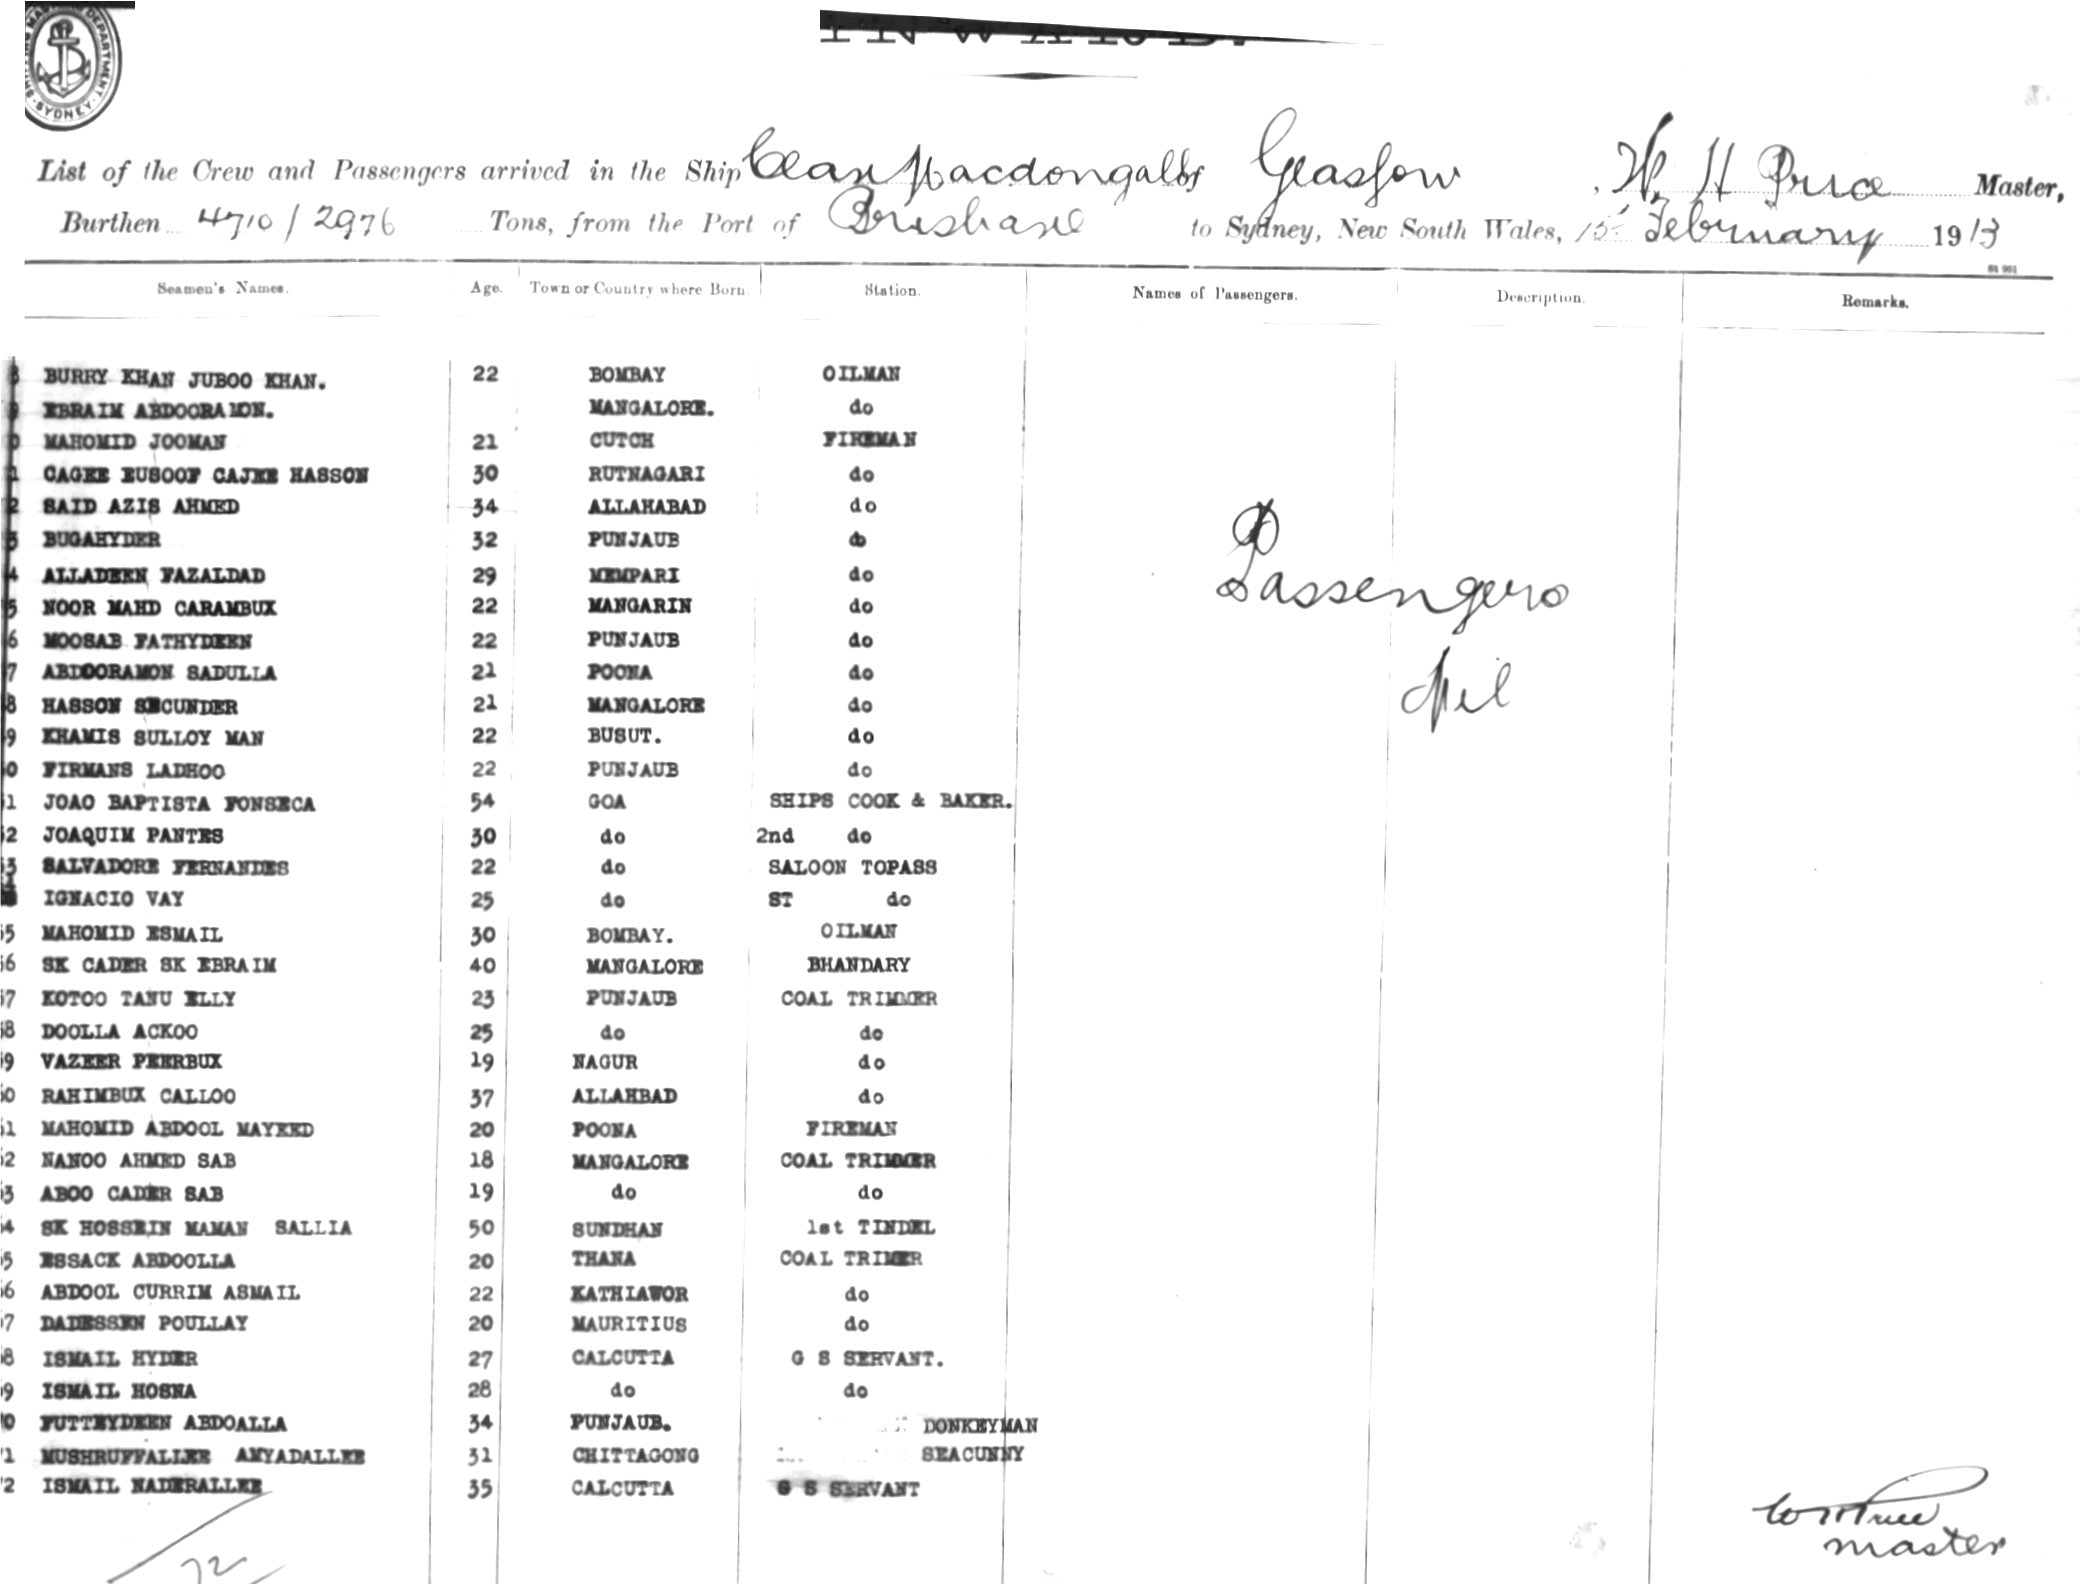 INWARD.
SHIPPING MASTER'S DEPARTMENT · SYDNEY ·
List of the Crew and Passengers arrived in the Ship Clan Macdougall of Glasgow, W. H Price Master,
Burthen 4710 / 2976 Tons, from the Port of Brisbane to Sydney, New South Wales, 15 February 1913
Seamen's Names. Age. Town or Country where Born. Station. Names of Passengers. Description. Remarks.
8 BURRY KHAN JUBOO KHAN. 22 BOMBAY OILMAN
9 EBRAIM ABDOORAMON. MANGALORE. do
0 MAHOMID JOOMAN 21 CUTCH FIREMAN
1 CAGEE EUSOOF CAJEE HASSON 30 RUTNAGARI do
2 SAID AZIS AHMED 34 ALLAHABAD do
3 BUGAHYDER 32 PUNJAUB do
4 ALLADEEN FAZALDAD 29 MEMPARI do
5 NOOR MAHD CARAMBUX 22 MANGARIN do
6 MOOSAB FATHYDEEN 22 PUNJAUB do
7 ABDOORAMON SADULLA 21 POONA do
8 HASSON SECUNDER 21 MANGALORE do
9 KHAMIS SULLOY MAN 22 BUSUT. do
0 FIRMANS LADHOO 22 PUNJAUB do
51 JOAO BAPTISTA FONSECA 54 GOA SHIPS COOK & BAKER.
52 JOAQUIM PANTES 30 do 2nd do
53 SALVADORE FERNANDES 22 do SALOON TOPASS
54 IGNACIO VAY 25 do ST do
55 MAHOMID ESMAIL 30 BOMBAY. OILMAN
56 SK CADER SK EBRAIM 40 MANGALORE BHANDARY
57 KOTOO TANU ELLY 23 PUNJAUB COAL TRIMMER
58 DOOLLA ACKOO 25 do do
59 VAZEER PEERBUX 19 NAGUR do
60 RAHIMBUX CALLOO 37 ALLAHBAD do
61 MAHOMID ABDOOL MAYEED 20 POONA FIREMAN
62 NANOO AHMED SAB 18 MANGALORE COAL TRIMMER
63 ABOO CADER SAB 19 do do
64 SK HOSSEIN MAMAN SALLIA 50 SUNDHAN 1st TINDEL
65 ESSACK ABDOOLLA 20 THANA COAL TRIMER
66 ABDOOL CURRIM ASMAIL 22 KATHIAWOR do
67 DADESSEN POULLAY 20 MAURITIUS do
68 ISMAIL HYDER 27 CALCUTTA G S SERVANT.
69 ISMAIL HOSNA 28 do do
70 FUTTEYDEEN ABDOALLA 34 PUNJAUB. DONKEYMAN
71 MUSHRUFFALLEE AMYADALLEE 31 CHITTAGONG SEACUNNY
72 ISMAIL NADERALLEE 35 CALCUTTA G S SERVANT
Passengers
Nil
72
W H Price
master